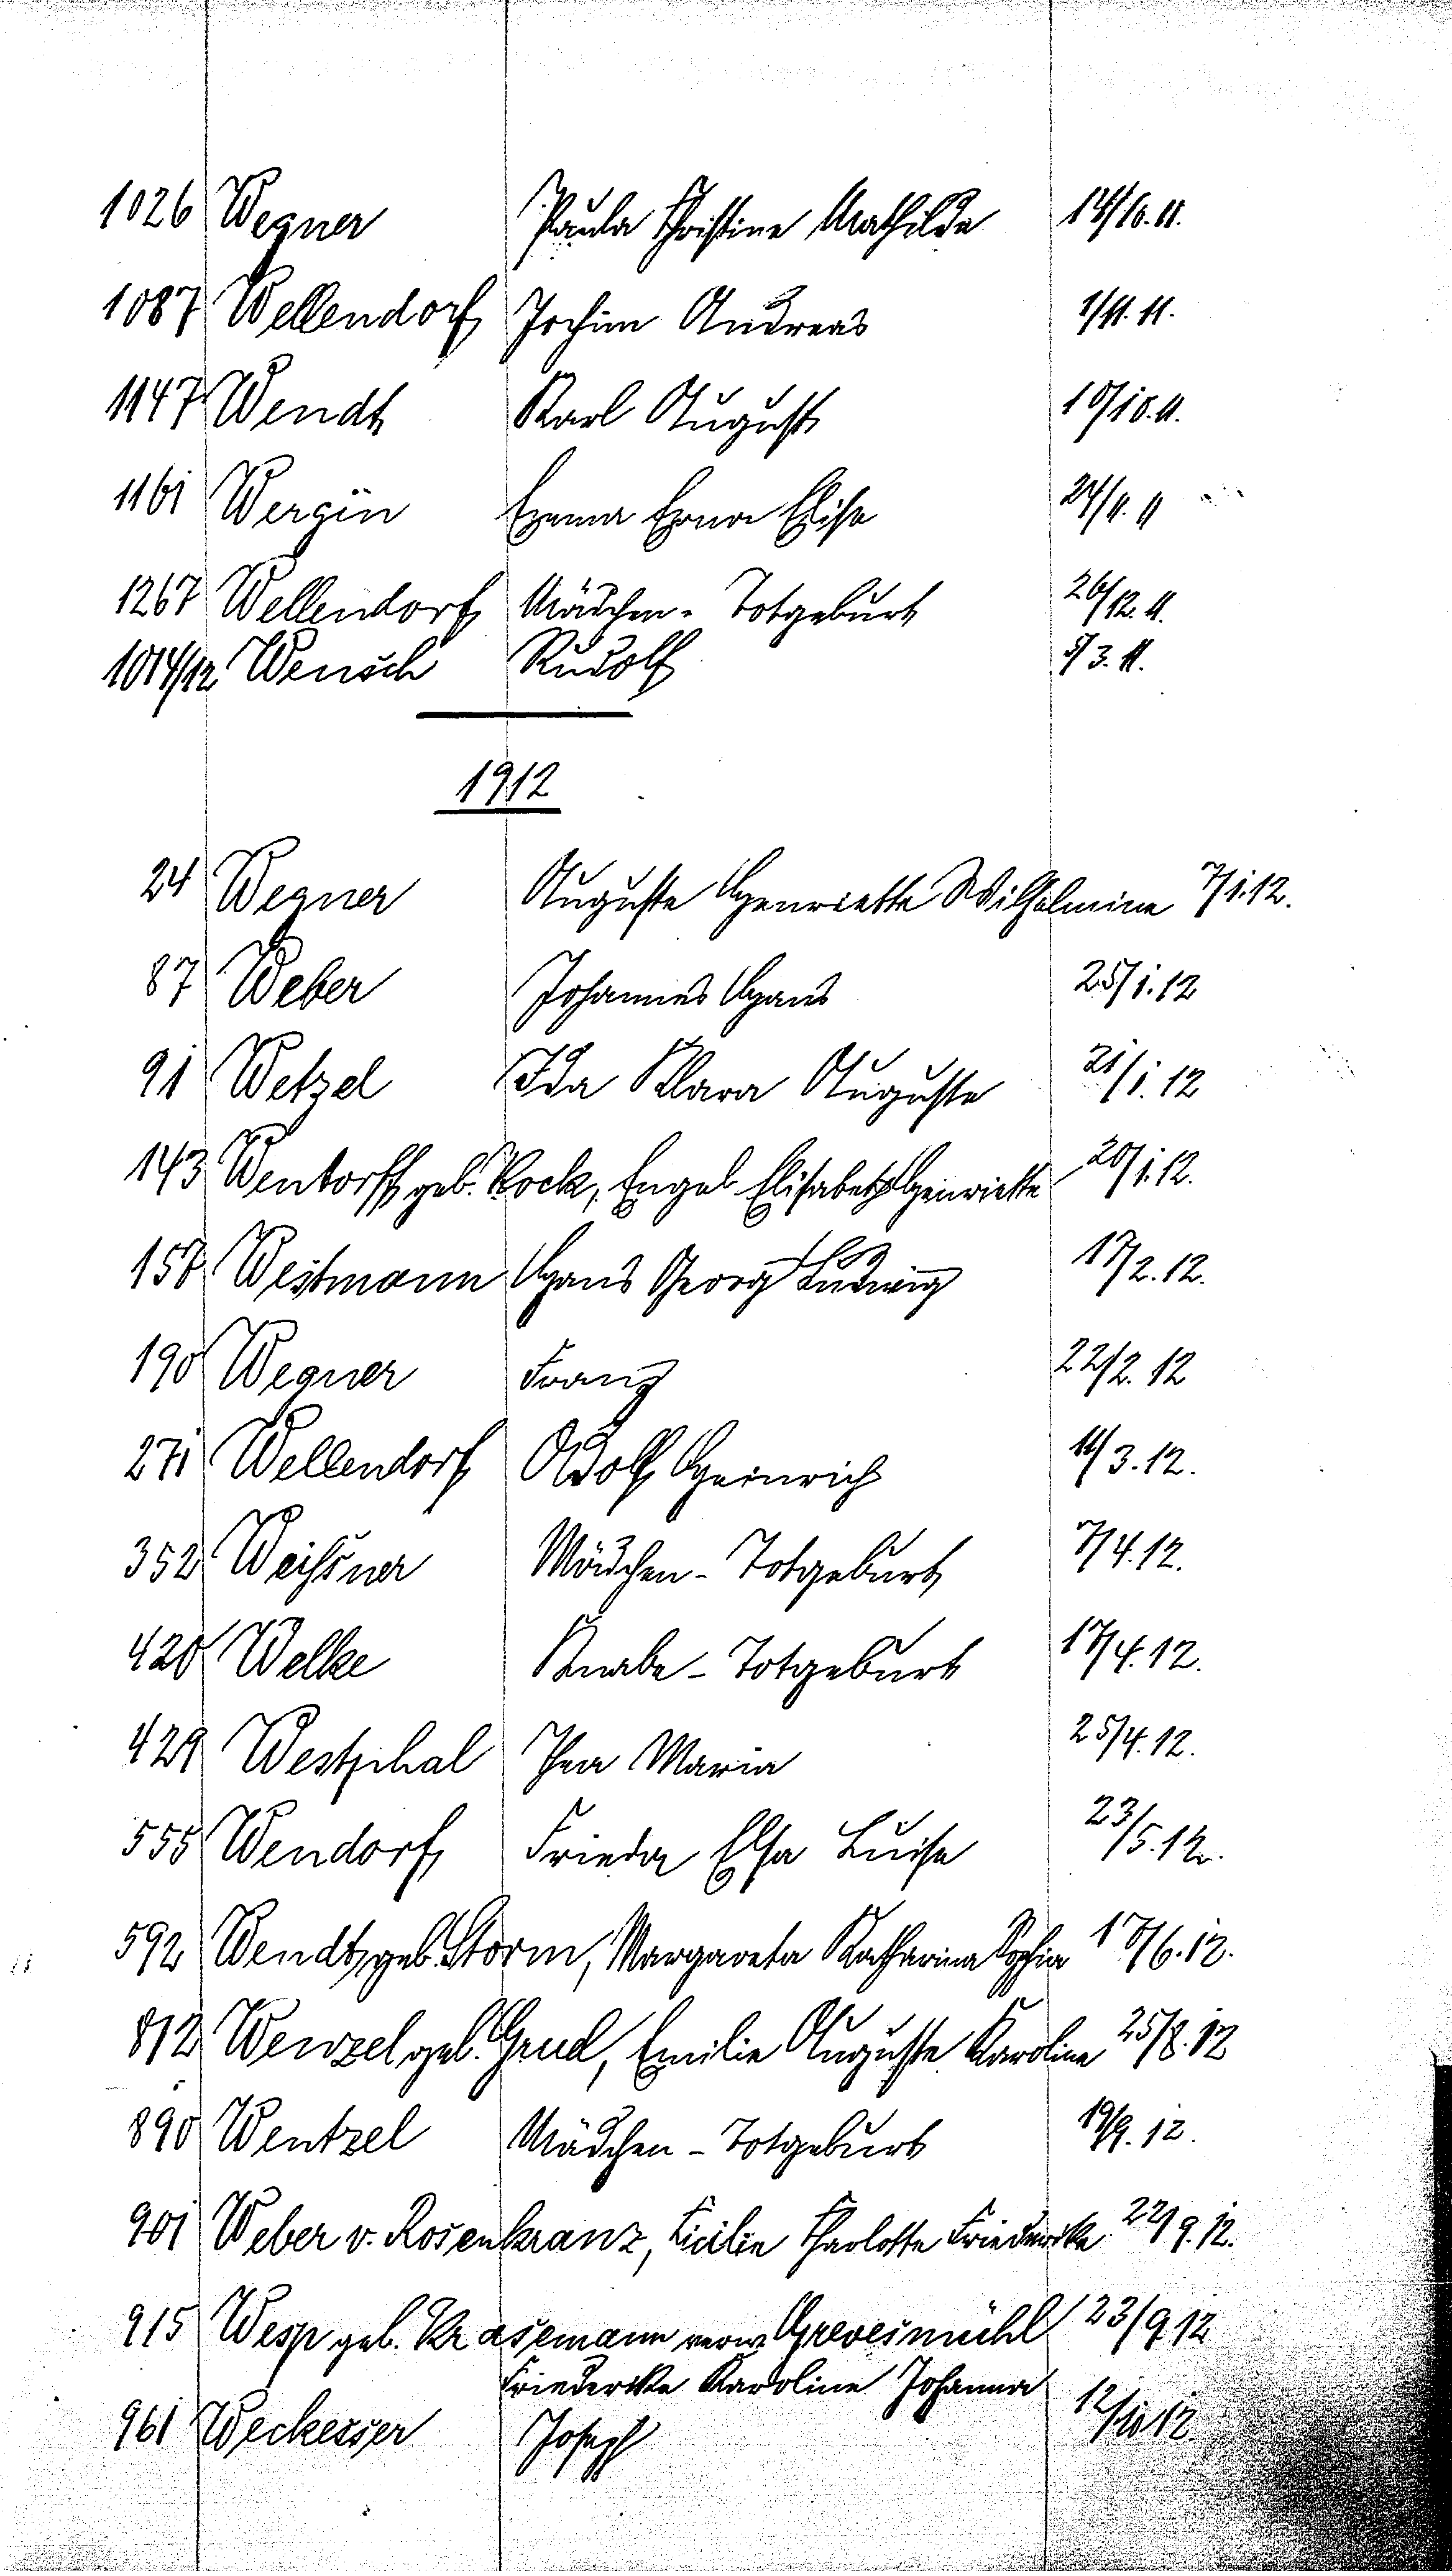 1026 Wegner Paula Christine Mathilde 14/10.11.
1087 Wellendorf Jochim Andreas 1/11.11.
1147 Wendt Karl August 10/10.11.
1161 Wergin Emma Erna Elise 24/11.11
1267 Wellendorf Mädchen-Totgeburt 26/12.11.
1014/12 Wensch Rudolf 5/3.11.
1912
24 Wegner Auguste Henriette Wilhelmine 7/1.12.
87 Weber Johannes Hans 25/1.12
91 Wetzel Ida Klara Auguste 21/1.12
143 Wentorff geb. Kock, Engel Elisabeth Henriette 20/1.12.
158 Westmann Hans Georg Ludwig 17/2.12.
190 Wegner Franz 22/2.12
271 Wellendorf Adolf Heinrich 11/3.12.
352 Weißner Mädchen-Totgeburt 7/4.12.
420 Welke Knabe-Totgeburt 17/4.12.
429 Westphal Thea Maria 25/4.12.
555 Wendorf Frieda Elsa Luise 23/5.12.
592 Wendt, geb. Storm, Margareta Katharina Sophia 17/6.12.
812 Wenzel geb. Grud, Emilie Auguste Karoline 25/8.12
890 Wentzel Mädchen-Totgeburt 19/9.12.
901 Weber v. Rosenkranz, Cicilie Charlotte Friederike 22/9.12.
915 Wesp geb. Krasemann verw. Grevesmühl 23/9 12
Friederike Karoline Johanna
961 Weckesser Joseph 12/10 12.